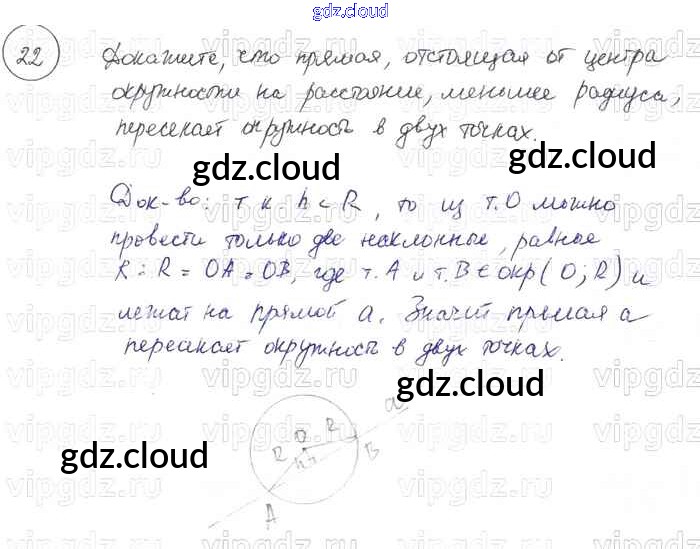 gdz.cloud
22 Докажите, что прямая, отстоящая от центра
окружности на расстояние, меньшее радиуса,
пересекает окружность в двух точках.
gdz.cloud
gdz.cloud
Док-во: т.к. h < R, то из т.О можно
провести только две наклонные, равные
R: R = OA = OB, где т.А и т.В ∈ окр(О; R) и
лежат на прямой а. Значит прямая а
пересекает окружность в двух точках.
gdz.cloud
gdz.cloud
a
O R
R h
B
A
vipgdz.ru